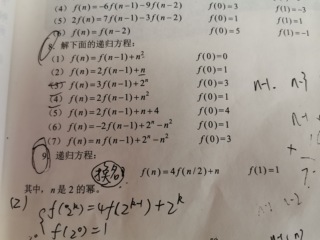 (4) f(n)=-6f(n-1)-9f(n-2) f(0)=3 f(1)=-3
(5) 2f(n)=7f(n-1)-3f(n-2) f(0)=1 f(1)=1
(6) f(n)=f(n-2) f(0)=5 f(1)=-1
8. 解下面的递归方程:
(1) f(n)=f(n-1)+n² f(0)=0
(2) f(n)=2f(n-1)+n f(0)=1
(3) f(n)=3f(n-1)+2ⁿ f(0)=3
(4) f(n)=2f(n-1)+n² f(0)=1
(5) f(n)=2f(n-1)+n+4 f(0)=4
(6) f(n)=-2f(n-1)+2ⁿ-n² f(0)=1
(7) f(n)=nf(n-1)+2ⁿ-n² f(0)=3
9. 递归方程:
换名
f(n)=4f(n/2)+n f(1)=1
其中, n是2的幂。
(2) f(2ᵏ)=4f(2ᵏ⁻¹)+2ᵏ
f(2⁰)=1
n-1. n-3